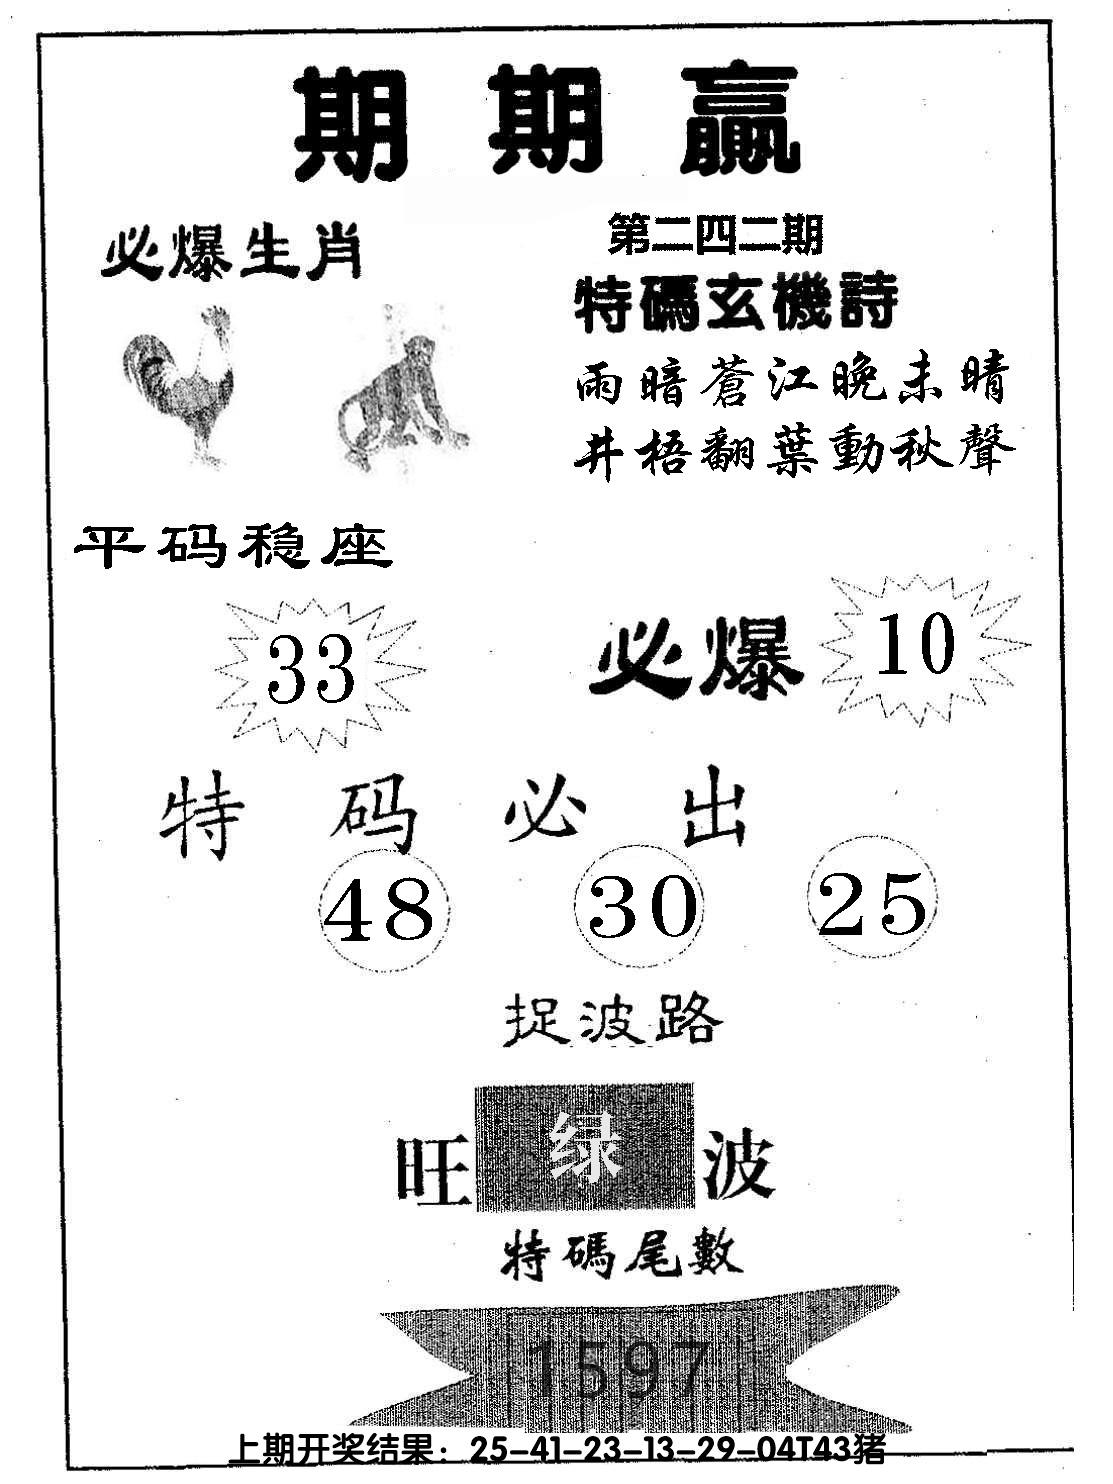 期期赢
必爆生肖
第二四二期
特碼玄機詩
雨暗蒼江晚未晴
井梧翻葉動秋聲
平码稳座
33
必爆 10
特码必出
48 30 25
捉波路
旺 绿 波
特碼尾數
1597
上期开奖结果：25-41-23-13-29-04T43猪